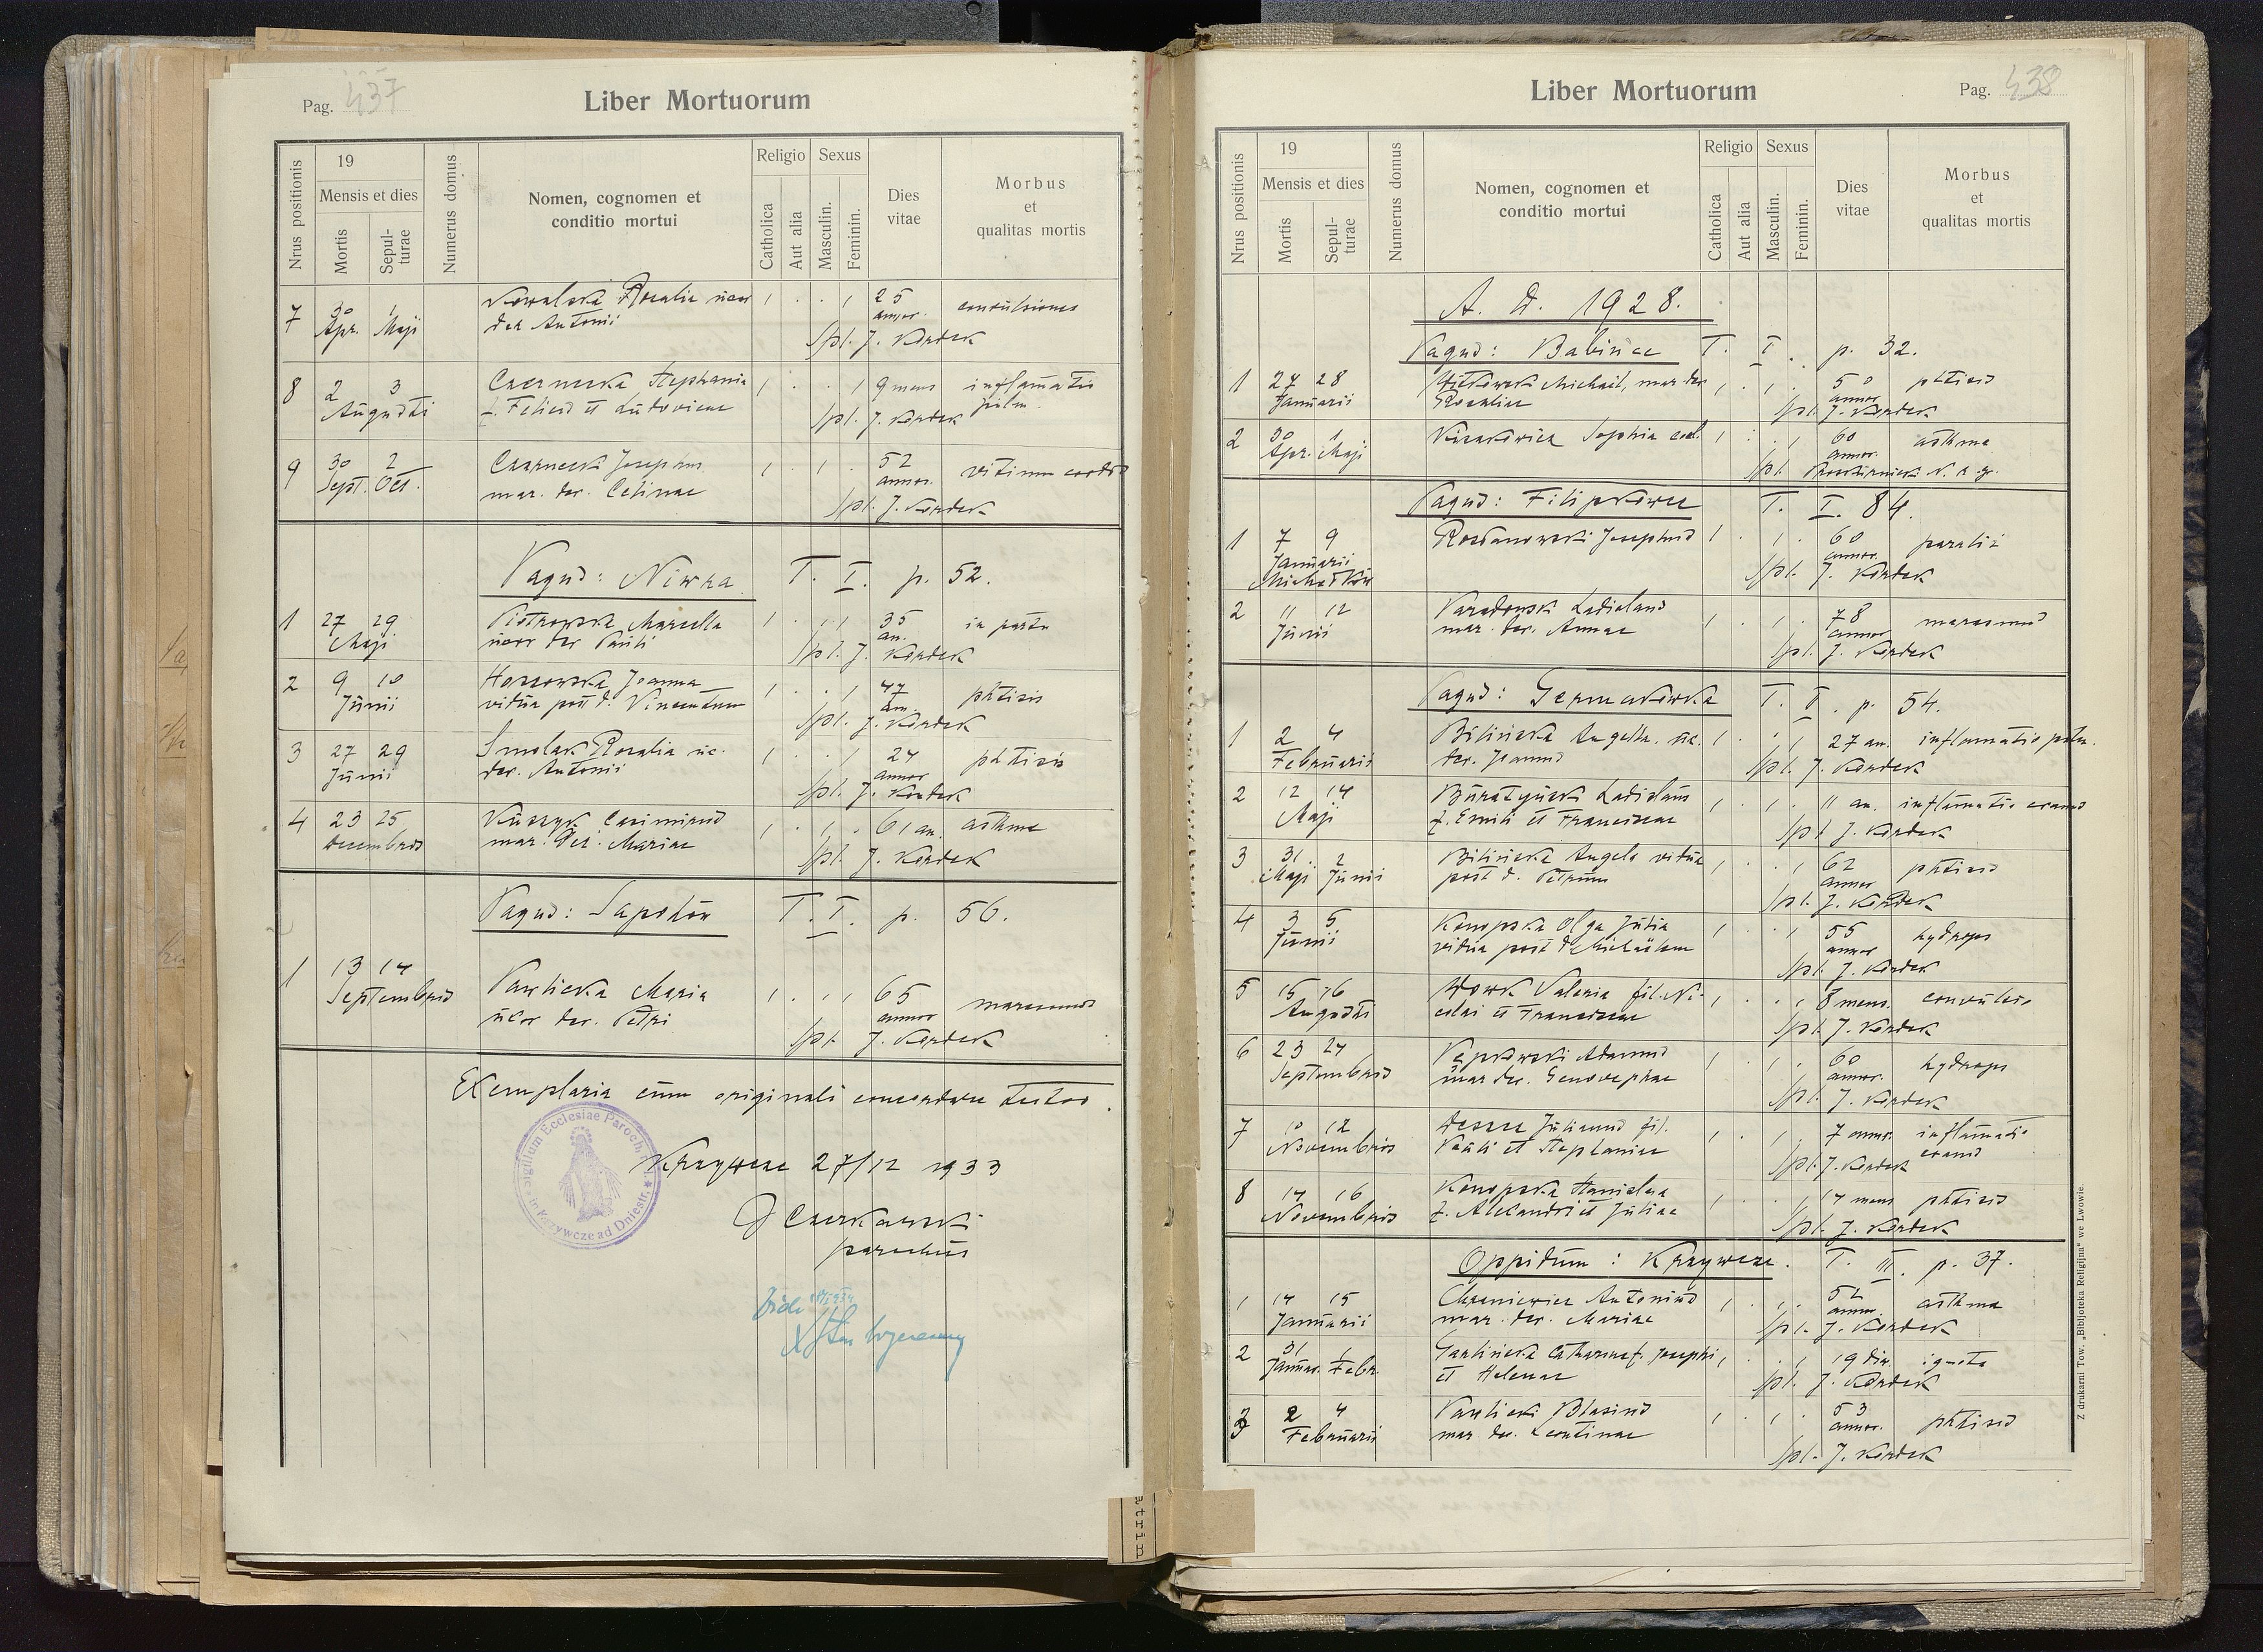 Pag. 437
Liber Mortuorum
Nrus positionis
19
Mensis et dies
Mortis
Sepulturae
Numerus domus
Nomen, cognomen et
conditio mortui
Religio
Catholica
Aut alia
Sexus
Masculin.
Feminin.
Dies
vitae
Morbus
et
qualitas mortis
7 30 1 Kowalska Rosalia uxor 1 . . 1 25 convulsiones
Apr. Maji der Antonii annor.
Spl. J. Kordek
8 2 3 Czernecka Stephania 1 . . 1 9 mens inflamatio
Augusti f. Felicis et Ludovicae pulm.
Spl. J. Kordek
9 30 2 Czarnecki Josephus 1 . 1 . 52 vitium cordis
Sept. Oct. mar. der. Celinae annor.
Spl. J. Kordek
Pagus: Niwra T. I. p. 52.
1 27 29 Piotrowska Marcella 1 . . 1 35 in partu
Maji uxor der Pauli an.
Spl. J. Kordek
2 9 10 Joanna 1 . . 1 47 phtisis
Junii vidua post d. Vincentum an.
Spl. J. Kordek
3 27 29 Smolak Rosalia ux. 1 . . 1 24 phtisis
Junii der. Antonii annor
Spl. J. Kordek
4 23 25 Casimirus 1 . 1 . 61 an. asthma
Decembris mar. der. Mariae
Spl. J. Kordek
Pagus: Sapohów T. I. p. 56.
1 13 14
Septembris Pawlicka Maria 1 . . 1 65 marasmus
uxor der. Petri annor
Spl. J. Kordek
Exemplaria cum originali concordare testor.
Sigillum Ecclesiae Paroch. r. l. in Krzywcze ad Dniestr.
Krzywcze 27/12 1933
J Czerkawski
parochus
Vidi
Pag. 438
Liber Mortuorum
Nrus positionis
19
Mensis et dies
Mortis
Sepulturae
Numerus domus
Nomen, cognomen et
conditio mortui
Religio
Catholica
Aut alia
Sexus
Masculin.
Feminin.
Dies
vitae
Morbus
et
qualitas mortis
A. D. 1928.
Pagus: Babińce T. I. p. 32.
1 27 28 Witkowski Michael, mar. der 1 . 1 . 50 phtisis
Januarii Rosaliae annor
Spl. J. Kordek
2 30 1 Sophia coel. 1 . . 1 60 asthma
Apr. Maji annor.
Spl.
Pagus: Filipkowce T. I. 84.
1 7 9 Josephus 1 . 1 . 60
Januarii annor.
Michałków Spl. J. Kordek
2 11 12 Ladislaus 1 . 1 . 78 marasmus
Junii mar. der. Annae annor
Spl. J. Kordek
Pagus: Germakówka T. I. p. 54.
1 2 4 Bilińska Angela. ux. 1 . . 1 27 an. inflamatio pulm.
Februarii der. Joannis
Spl. J. Kordek
2 12 14 Buratyński Ladislaus 1 . 1 . 11 an. inflamatio
Maji f. Emili et Franciscae
Spl J. Kordek
3 31 2 Bilińska Angela vidua 1 . . 1 62 phtisis
Maji Junii post d. Petrum annor
Spl. J. Kordek
4 3 5 Konopska Olga Julia 1 . . 1 55 hydrops
Junii vidua post d. Michaëlem annor
Spl. J. Kordek
5 15 16 Wowk Valeria fil. Ni- 1 . . 1 8 mens. convulsio
Augusti colai et Franciscae
Spl. J. Kordek
6 23 24 Adamus 1 . 1 . 60 hydrops
Septembris mar der. Genovephae annor.
Spl. J. Kordek
7 10 12 Julianus fil. 1 . 1 . 7 annor. inflamatio
Novembris Pauli et Stephaniae
Spl. J. Kordek
8 14 16 Konopska Stanislaa 1 . . 1 14 mens phtisis
Novembris f. Alexandri et Juliae
Spl. J. Kordek
Oppidum: Krzywcze. T. III. p. 37.
1 14 15 Antonius 1 . 1 . 52 asthma
Januarii mar. der. Mariae annor.
Spl. J. Kordek
2 31 1 Catharina f. Josephi 1 . . 1 19 die. ignota
Januar. Febr. et Helenae
Spl. J. Kordek
3 2 4 Pawlicki Blasius 1 . 1 . 53 phtisis
Februarii mar der. Leontinae annor.
Spl. J. Kordek
Z drukarni Tow. „Bibljoteka Religijna" we Lwowie.